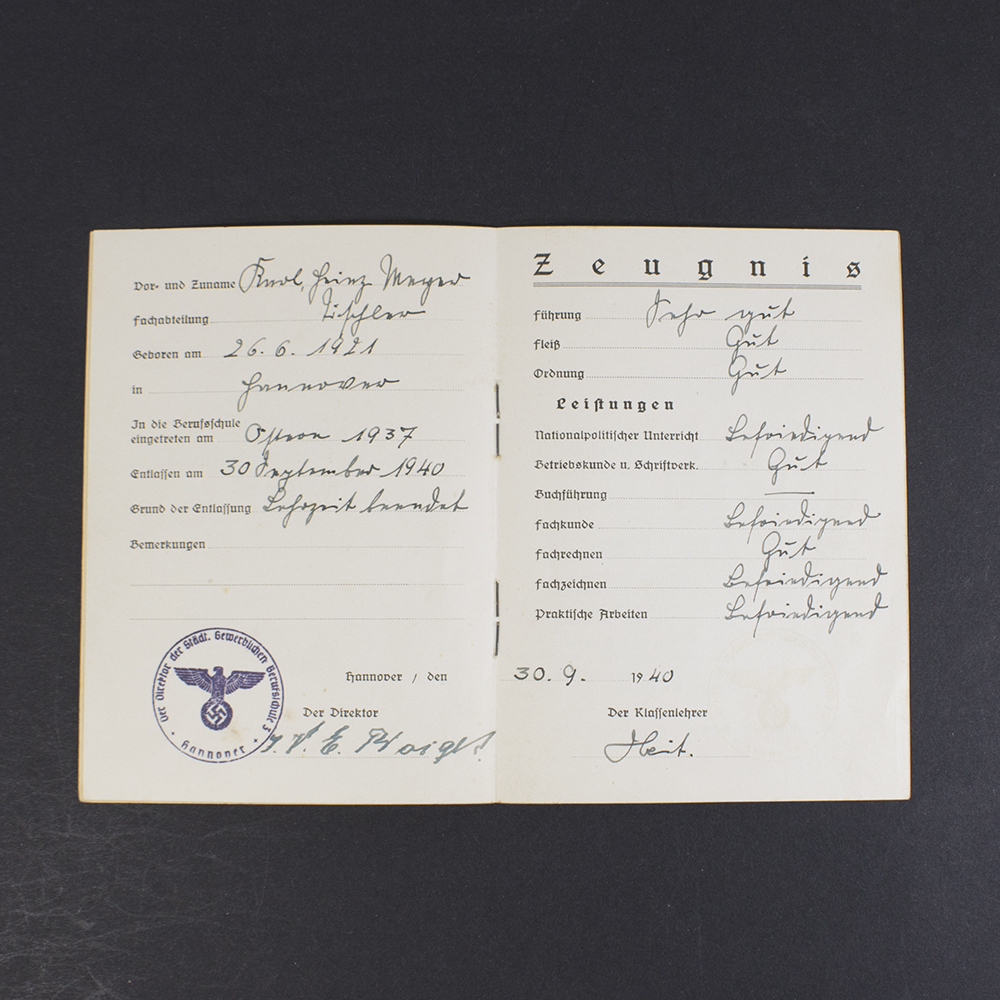 Vor- und Zuname Karl, Heinz Meyer
Fachabteilung Tischler
Geboren am 26. 6. 1921
in Hannover
In die Berufsschule
eingetreten am Ostern 1937
Entlassen am 30 September 1940
Grund der Entlassung Lehrzeit beendet
Bemerkungen
Der Direktor der Städt. Gewerblichen Berufsschule 5
Hannover
Hannover, den
Der Direktor
J. V. E. Voigt
Zeugnis
Führung Sehr gut
Fleiß Gut
Ordnung Gut
Leistungen
Nationalpolitischer Unterricht Befriedigend
Betriebskunde u. Schriftverk. Gut
Buchführung —
Fachkunde Befriedigend
Fachrechnen Gut
Fachzeichnen Befriedigend
Praktische Arbeiten Befriedigend
30. 9. 1940
Der Klassenlehrer